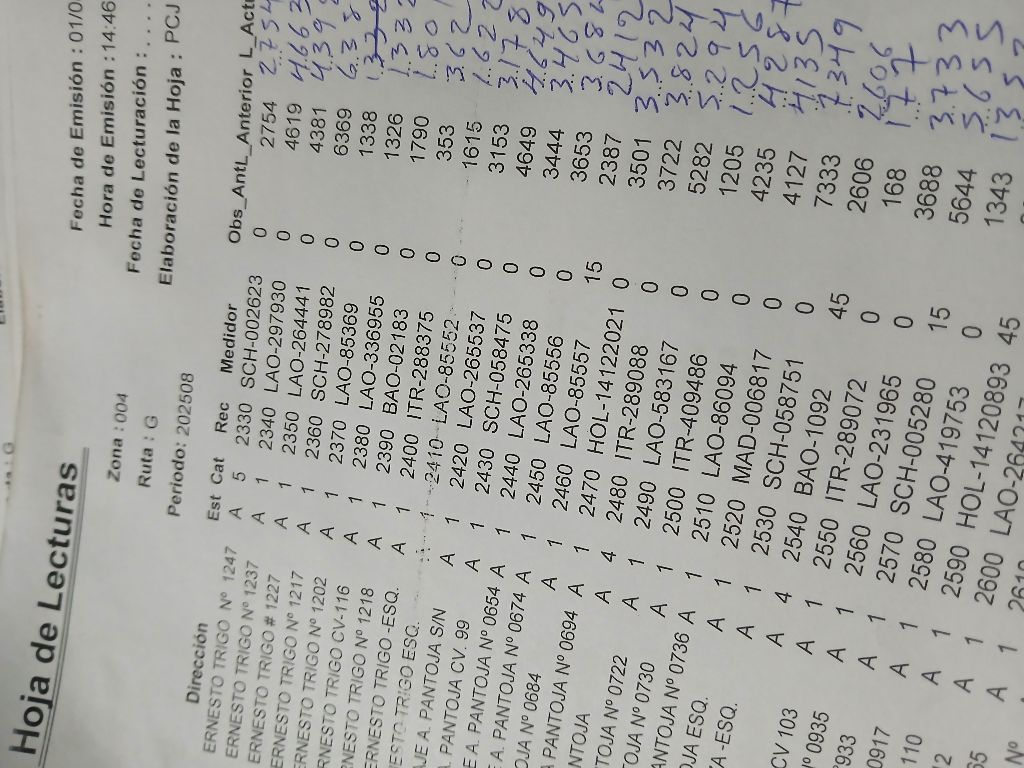 Hoja de Lecturas
Zona : 004
Ruta : G
Periodo: 202508
Fecha de Emisión : 01/0
Hora de Emisión : 14:46
Fecha de Lecturación : . . . .
Elaboración de la Hoja : PCJ
Dirección
ERNESTO TRIGO Nº 1247
ERNESTO TRIGO Nº 1237
ERNESTO TRIGO # 1227
ERNESTO TRIGO Nº 1217
ERNESTO TRIGO Nº 1202
RNESTO TRIGO CV-116
RNESTO TRIGO Nº 1218
ERNESTO TRIGO -ESQ.
ESTO TRIGO ESQ.
AJE A. PANTOJA S/N
A. PANTOJA CV. 99
E A. PANTOJA Nº 0654
E A. PANTOJA Nº 0674
OJA Nº 0684
A PANTOJA Nº 0694
NTOJA
TOJA Nº 0722
TOJA Nº 0730
ANTOJA Nº 0736
OJA ESQ.
A -ESQ.
CV 103
Nº 0935
0933
0917
110
Nº
Est Cat
A 5
A 1
A 1
A 1
A 1
A 1
A 1
A 1
A 1
A 1
A 1
A 1
A 1
A 4
A 1
A 1
A 1
A 1
A 1
A 4
A 1
A 1
A 1
A 1
A 1
A 1
Rec Medidor
2330 SCH-002623
2340 LAO-297930
2350 LAO-264441
2360 SCH-278982
2370 LAO-85369
2380 LAO-336955
2390 BAO-02183
2400 ITR-288375
2410 LAO-85552
2420 LAO-265537
2430 SCH-058475
2440 LAO-265338
2450 LAO-85556
2460 LAO-85557
2470 HOL-14122021
2480 ITR-289088
2490 LAO-583167
2500 ITR-409486
2510 LAO-86094
2520 MAD-006817
2530 SCH-058751
2540 BAO-1092
2550 ITR-289072
2560 LAO-231965
2570 SCH-005280
2580 LAO-419753
2590 HOL-14120893
2600
Obs_Ant
0
0
0
0
0
0
0
0
0
0
0
0
15
0
0
0
0
0
0
0
45
0
0
15
0
45
L_Anterior
2754
4619
4381
6369
1338
1326
1790
353
1615
3153
4649
3444
3653
2387
3501
3722
5282
1205
4235
4127
7333
2606
168
3688
5644
1343
L_Actu
2754
4663
4398
1332
1801
362
1622
3178
4649
3465
3684
2412
3532
3824
5294
1256
4287
4135
7349
2606
177
3733
5655